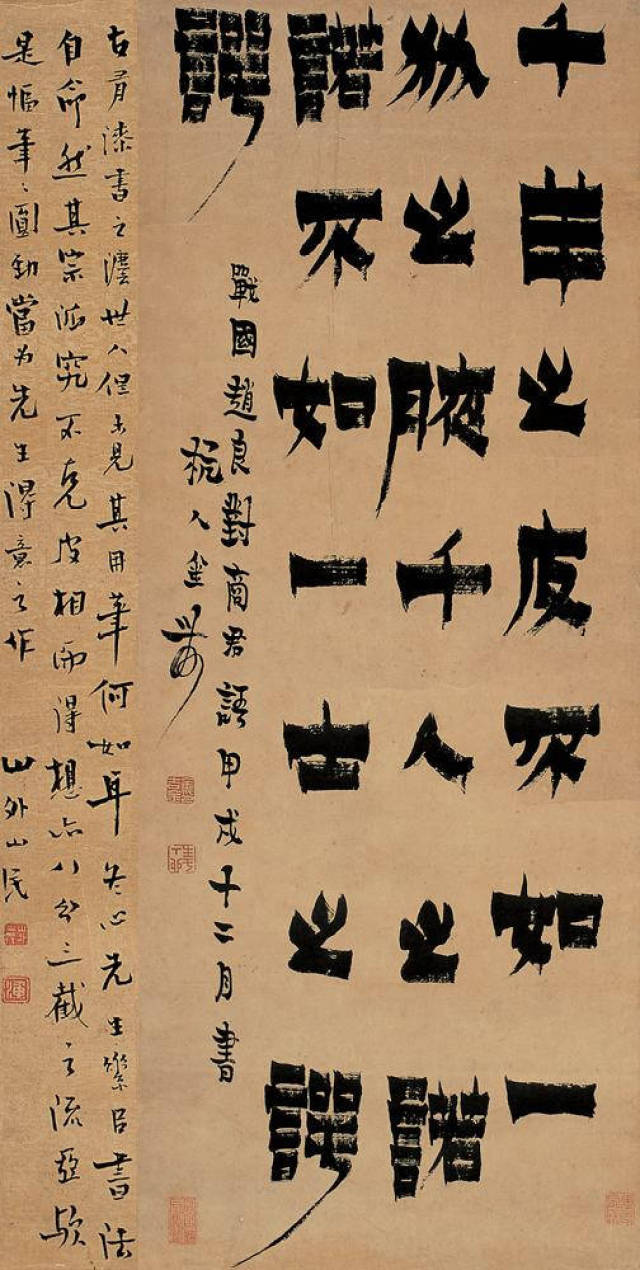 千羊之皮不如一
狐之腋千人之諾
諾不如一士之諤
諤
戰國趙良對商君語甲戌十二月書
杭人金農
古有漆書之灋世人但未見其用筆何如耳冬心先生㠯書法
自命然其宗派究不克皮相而得想亦八分三截之流亞歟
是幅筆〻圓勁當为先生得意之作
山外山民